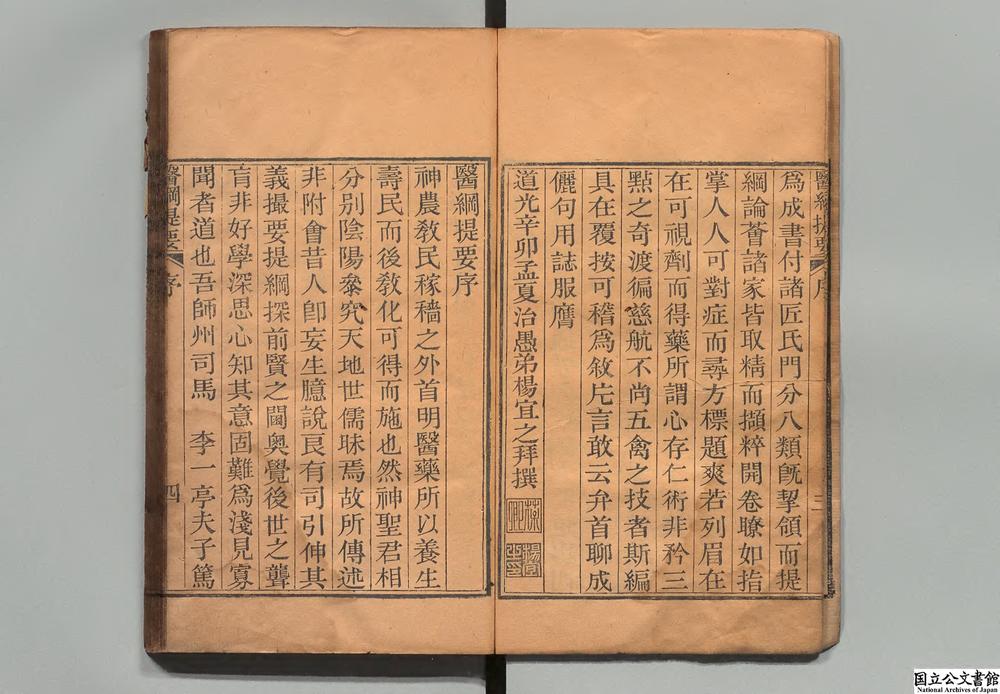 醫綱提要 序 三
爲成書付諸匠氏門分八類旣挈領而提
綱論薈諸家皆取精而擷粹開卷瞭如指
掌人人可對症而尋方標題爽若列眉在
在可視劑而得藥所謂心存仁術非矜三
㸃之奇渡徧慈航不尚五禽之技者斯編
具在覆按可稽爲敘片言敢云弁首聊成
儷句用誌服膺
道光辛卯孟夏治愚弟楊宜之拜撰
醫綱提要序
神農敎民稼穡之外首明醫藥所以養生
壽民而後敎化可得而施也然神聖君相
分別陰陽叅究天地世儒昧焉故所傳述
非附會昔人卽妄生臆說良有司引伸其
義撮要提綱探前賢之閫奧覺後世之聾
肓非好學深思心知其意固難爲淺見寡
聞者道也吾師州司馬 李一亭夫子篤
醫綱提要 序 四
国立公文書館
National Archives of Japan